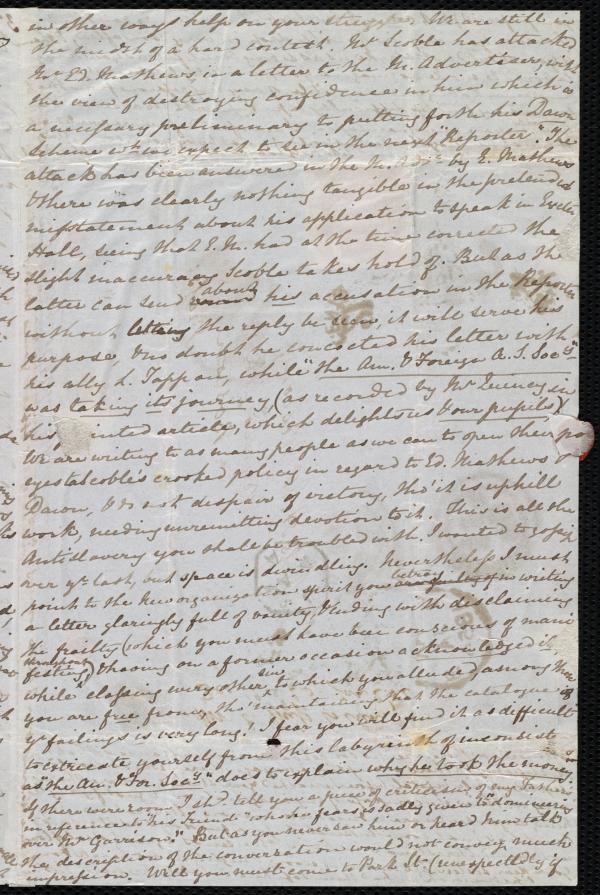 in other ways help on your struggles. We are still in
the midst of a hard contest. Mr Scoble has attacked
Mr Ed. Mathews, in a letter to the M. Advertiser, with
the view of destroying confidence in him which is
a necessary preliminary to putting forth his Dawn
Scheme wh. we expect to see in the next "Reporter". The
attack has been answered in the M. Adr. by E. Mathews
& there was clearly nothing tangible in the pretended
misstatement about his application to speak in Exeter
Hall, seeing that E. M. had at the time corrected the
slight inaccuracy Scoble takes hold of. But as the
latter can send about his accusation in the Reporter
without letting the reply be seen, it will serve his
purpose, & no doubt he concocted his letter with
his ally L. Tappan, while "the Am. & Foreign A. S. Socy."
was taking its journey, (as recorded by Mr Quincy in
his printed article, which delights us & our pupils)
We are writing to as many people as we can to open their
eyes to Scoble's crooked policy in regard to Ed. Mathews &
Dawn, & do not despair of victory, tho' it is uphill
work, needing unremitting devotion to it. This is all the
Antislavery you shall be troubled with. I wanted to go
over yr. last, but space is dwindling. Nevertheless I must
point to the new organization spirit you betray in writing
a letter glaringly full of vanity, & ending with disclaiming
the frailty (which you must have been conscious of mani
festing throughout) & having on a former occasion acknowledged it,
while classing every other sin to which you alluded among those
you are free from, tho' maintaining that the catalogue of
yr failings is very long. I fear you will find it as difficult
to extricate yourself from this labyrinth of inconsist
as "the Am. & For. Socy." does to explain why he took the money.
If there were room I shd. tell you a piece of criticism of my Father's
in reference to "his Friend" who he fears is sadly given to domineering
over Mr Garrison." But as you never saw him or heard him talk
the description of the conversation would not convey much
impression. Well you must come to Park St (unexpectedly if